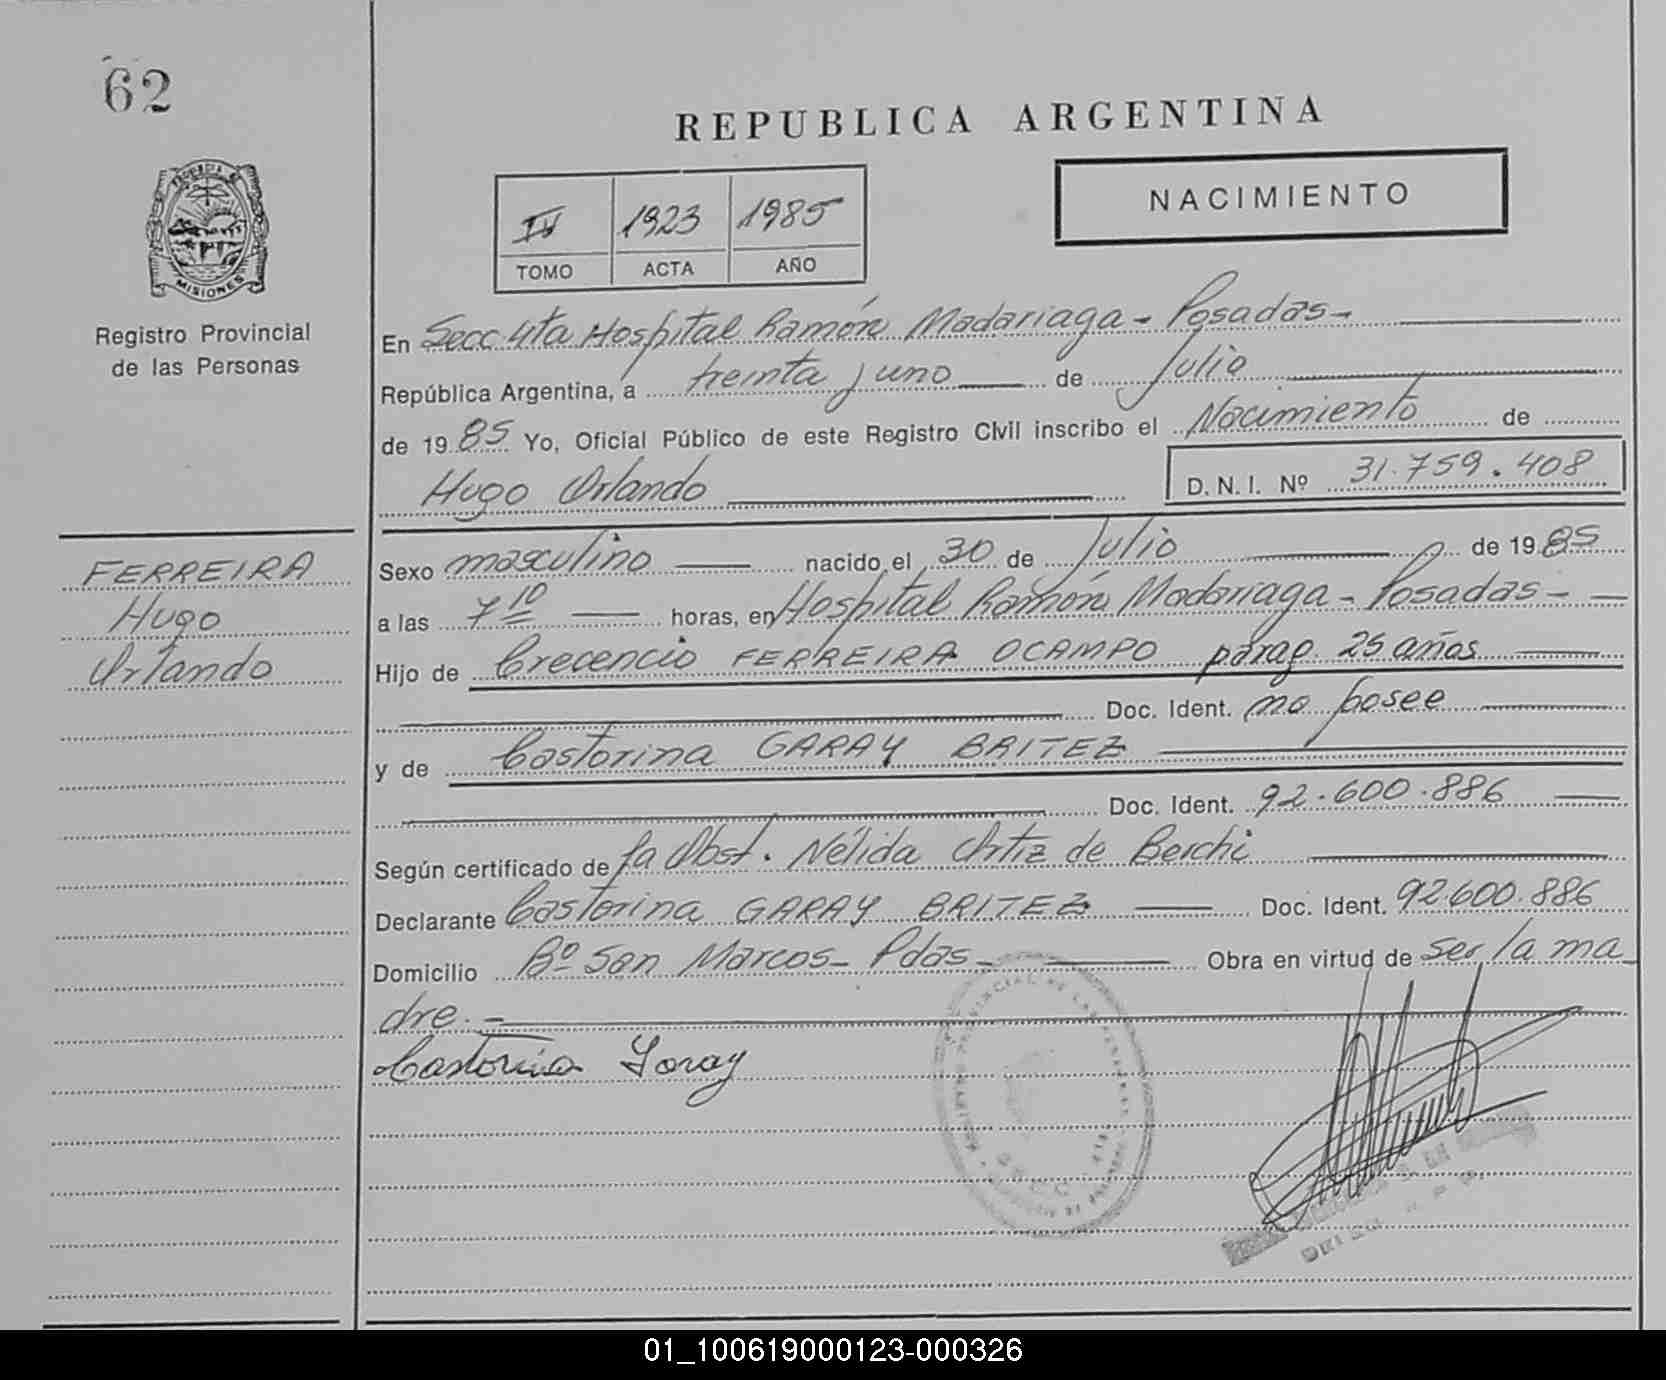 62
REPUBLICA ARGENTINA
NACIMIENTO
IV 1923 1985
TOMO ACTA AÑO
PROVINCIA DE
MISIONES
Registro Provincial
de las Personas
En Secc 4ta Hospital Ramón Madariaga - Posadas -
República Argentina, a treinta y uno de Julio
de 1985 Yo, Oficial Público de este Registro Civil inscribo el Nacimiento de
Hugo Orlando D. N. I. Nº 31.759.408
FERREIRA
Hugo
Orlando
Sexo masculino nacido el 30 de Julio de 1985
a las 7 10 horas, en Hospital Ramón Madariaga - Posadas -
Hijo de Crecencio FERREIRA OCAMPO parag. 25 años
Doc. Ident. no posee
y de Castorina GARAY BRITEZ
Doc. Ident. 92.600.886
Según certificado de la Obst. Nélida Ortiz de Berchi
Declarante Castorina GARAY BRITEZ Doc. Ident. 92.600.886
Domicilio Bº San Marcos - Pdas - Obra en virtud de ser la ma-
dre. -
Castorina Garay
01_100619000123-000326